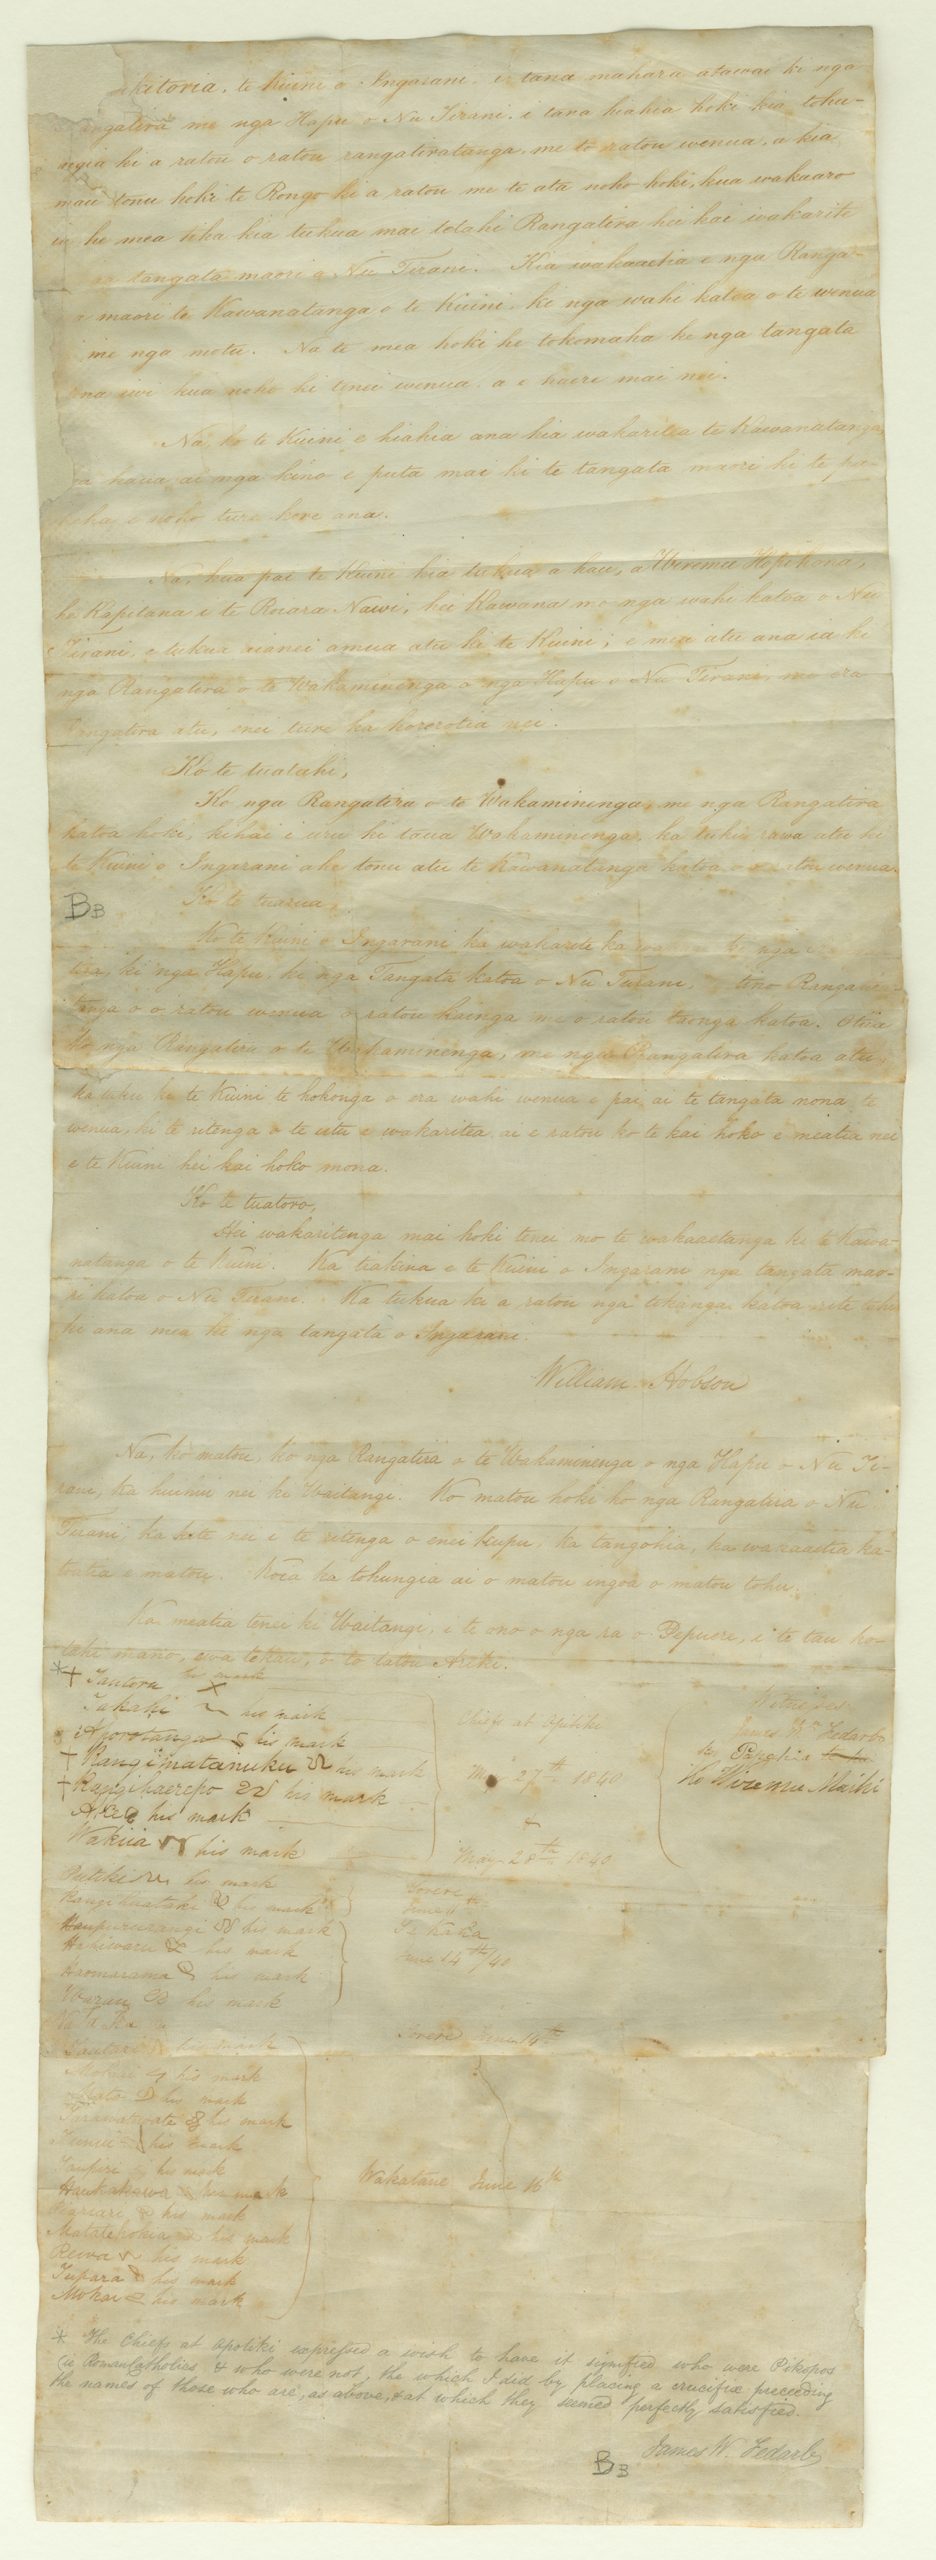 ikitoria, te Kuini o Ingarani, i tana mahara atawai ki nga
angatira me nga Hapu o Nu Tirani, i tana hiahia hoki kia tohu-
ngia ki a ratou o ratou rangatiratanga, me to ratou wenua, a kia
mau tonu hoki te Rongo ki a ratou me te ata noho hoki, kua wakaaro
ia he mea tika kia tukua mai tetahi Rangatira hei kai wakarite
tangata maori o Nu Tirani. Kia wakaaetia e nga Ranga-
maori te Kawanatanga o te Kuini, ki nga wahi katoa o te wenua
me nga motu. Na te mea hoki he tokomaha ke nga tangata
ona iwi kua noho ki tenei wenua, a e haere mai nei.
Na, ko te Kuini e hiahia ana kia wakaritea te Kawanatanga,
kia kaua ai nga kino e puta mai ki te tangata maori ki te pa-
keha e noho ture kore ana.
Na, kua pai te Kuini kia tukua a hau, a Wiremu Hopihona,
he Kapitana i te Roiara Nawi, hei Kawana mo nga wahi katoa o Nu
Tirani, e tukua aianei amua atu ki te Kuini; e mea atu ana ia ki
nga Rangatira o te Wakaminenga o nga Hapu o Nu Tirani, me era
Rangatira atu, enei ture ka korerotia nei.
Ko te tuatahi,
Ko nga Rangatira o te Wakaminenga, me nga Rangatira
katoa hoki, kihai i uru ki taua Wakaminenga, ka tuku rawa atu ki
te Kuini o Ingarani ake tonu atu te Kawanatanga katoa o o ratou wenua.
Ko te tuarua,
BB
Ko te Kuini o Ingarani ka wakarite ka wa ki nga
tira, ki nga Hapu, ki nga Tangata katoa o Nu Tirani, tino Rangatira-
tanga o o ratou wenua o ratou kainga me o ratou taonga katoa. Otiia
ko nga Rangatira o te Wakaminenga, me nga Rangatira katoa atu,
ka tuku ki te Kuini te hokonga o era wahi wenua e pai ai te tangata nona te
wenua, ki te ritenga o te utu e wakaritea ai e ratou ko te kai hoko e meatia nei
e te Kuini hei kai hoko mona.
Ko te tuatoro,
Hei wakaritenga mai hoki tenei mo te wakaaetanga ki te Kawa-
natanga o te Kuini. Ka tiakina e te Kuini o Ingarani nga tangata mao-
ri katoa o Nu Tirani. Ka tukua ki a ratou nga tikanga katoa rite tahi
ki ana mea ki nga tangata o Ingarani.
William Hobson
Na, ko matou, ko nga Rangatira o te Wakaminenga o nga Hapu o Nu Ti-
rani, ka huihui nei ki Waitangi. Ko matou hoki ko nga Rangatira o Nu
Tirani, ka kite nei i te ritenga o enei kupu, ka tangohia, ka wakaaetia ka-
toatia e matou. Koia ka tohungia ai o matou ingoa o matou tohu.
Ka meatia tenei ki Waitangi, i te ono o nga ra o Pepuere, i te tau ko-
tahi mano, ewa tekau, o to tatou Ariki.
* + Tautoru his mark
Takahi his mark
Aporotanga his mark
+ Rangimatanuku his mark
+ Rangihaerepo his mark
Ake his mark
Wakiia his mark
Chiefs at Opitiki
May 27th 1840
&
May 28th 1840
Witnesses
James Wm Fedarb
ko Papahia
Ko Wiremu Maihi
Putiki his mark
Rangihuataki his mark
Torere
June 11th
Haupururangi his mark
Hahiwaru his mark
Haomarama his mark
Waruu his mark
Te Kaha
June 14th/40
Tautari his mark
Mokai his mark
Mato his mark
Tarawatewate his mark
Tunui his mark
Taupiri his mark
Haukakawa his mark
Piariari his mark
Matatehokia his mark
Rewa his mark
Tupara his mark
Mokai his mark
Torere June 14th
Wakatane June 16th
* The Chiefs at Opotiki expressed a wish to have it signified who were Pikopos
(ie Roman Catholics) & who were not, the which I did by placing a crucifix preceeding
the names of those who are, as above, & at which they seemed perfectly satisfied.
James W. Fedarb
BB